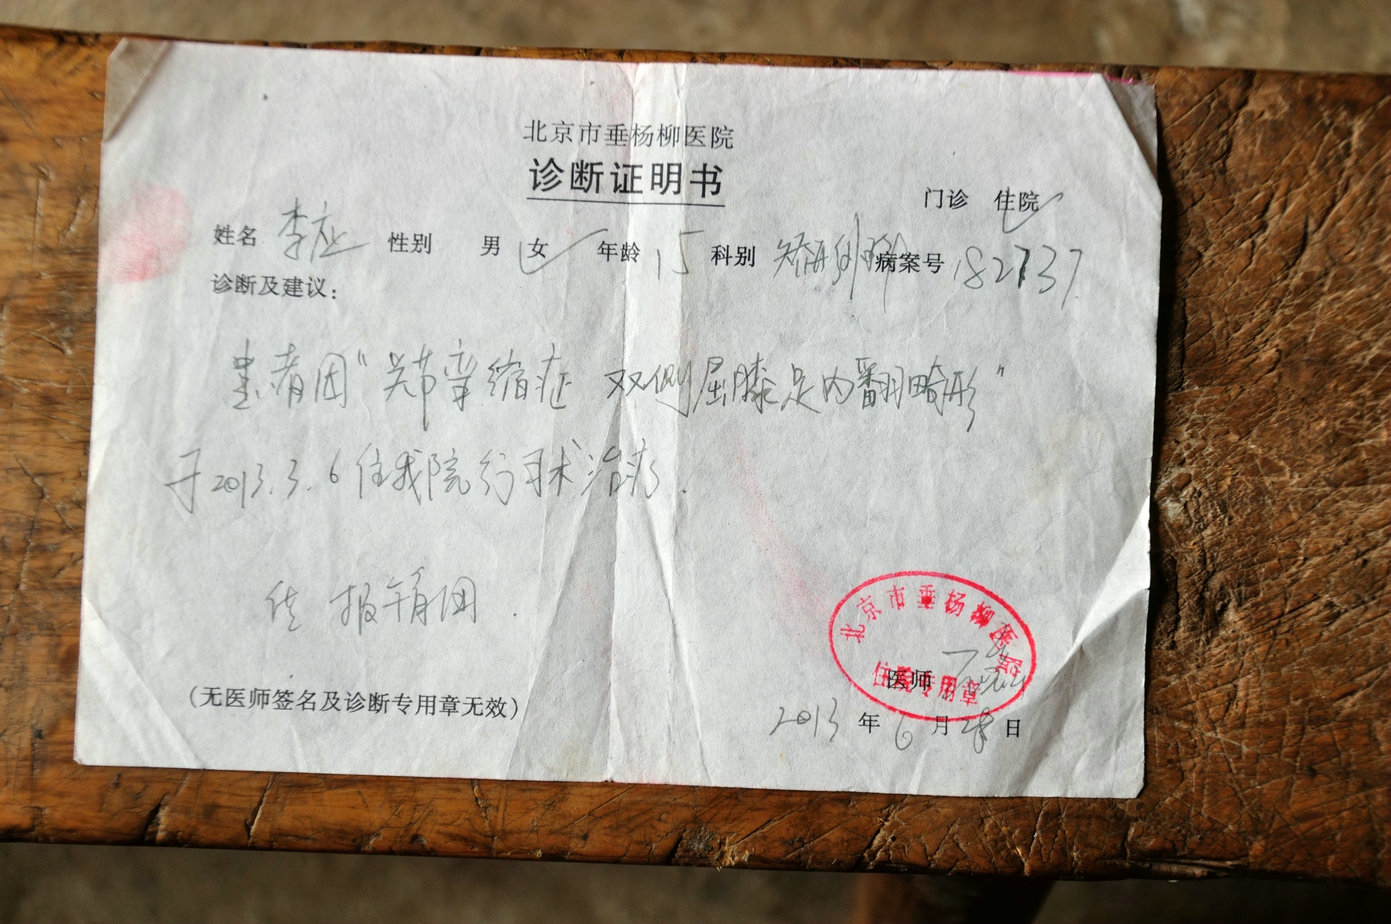 北京市垂杨柳医院
诊断证明书
门诊 住院✓
姓名 李应 性别 男 女✓ 年龄 15 科别 矫形外科 病案号 182737
诊断及建议：
患者因“关节挛缩症 双侧屈膝足内翻畸形”
于2013.3.6住我院行手术治疗.
(无医师签名及诊断专用章无效)
北京市垂杨柳医院
医师
2013 年 6 月 日